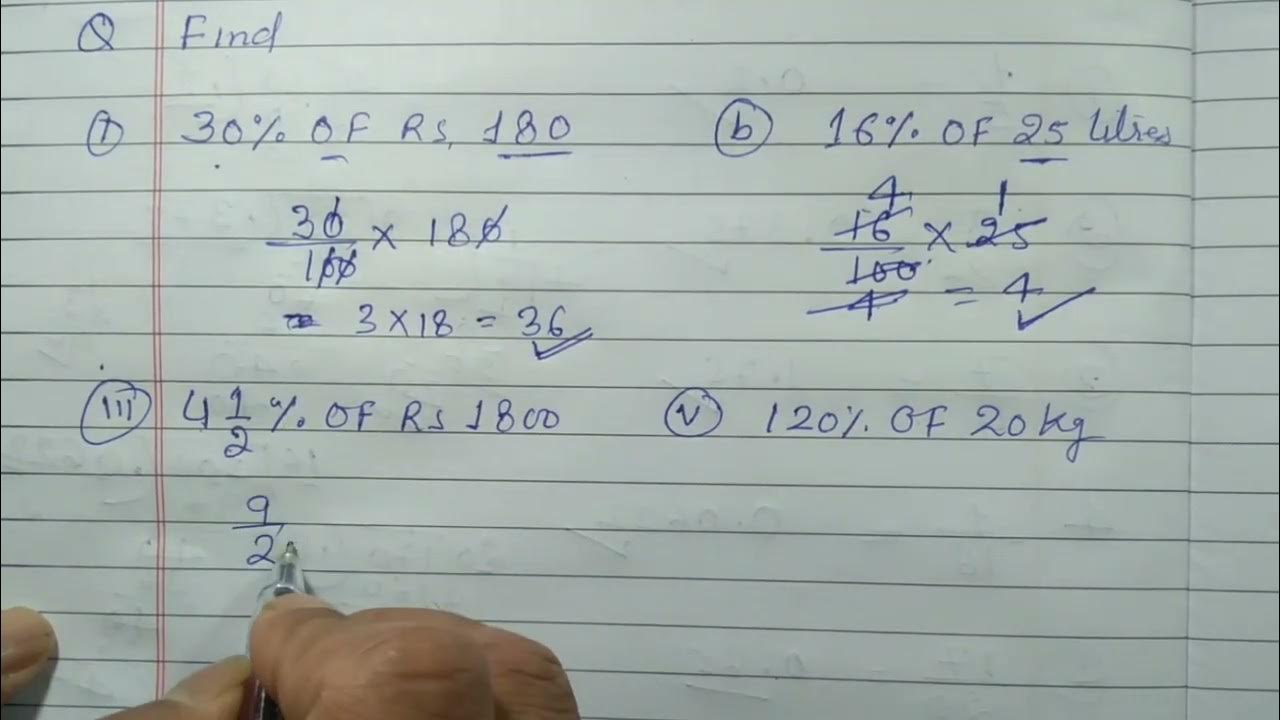 Q Find
(i) 30% OF Rs. 180
30/100 × 180
= 3 × 18 = 36
(b) 16% OF 25 litres
4 1
16/100 × 25
4 = 4
(iii) 4 1/2 % OF Rs 1800
9/2
(v) 120% OF 20 kg